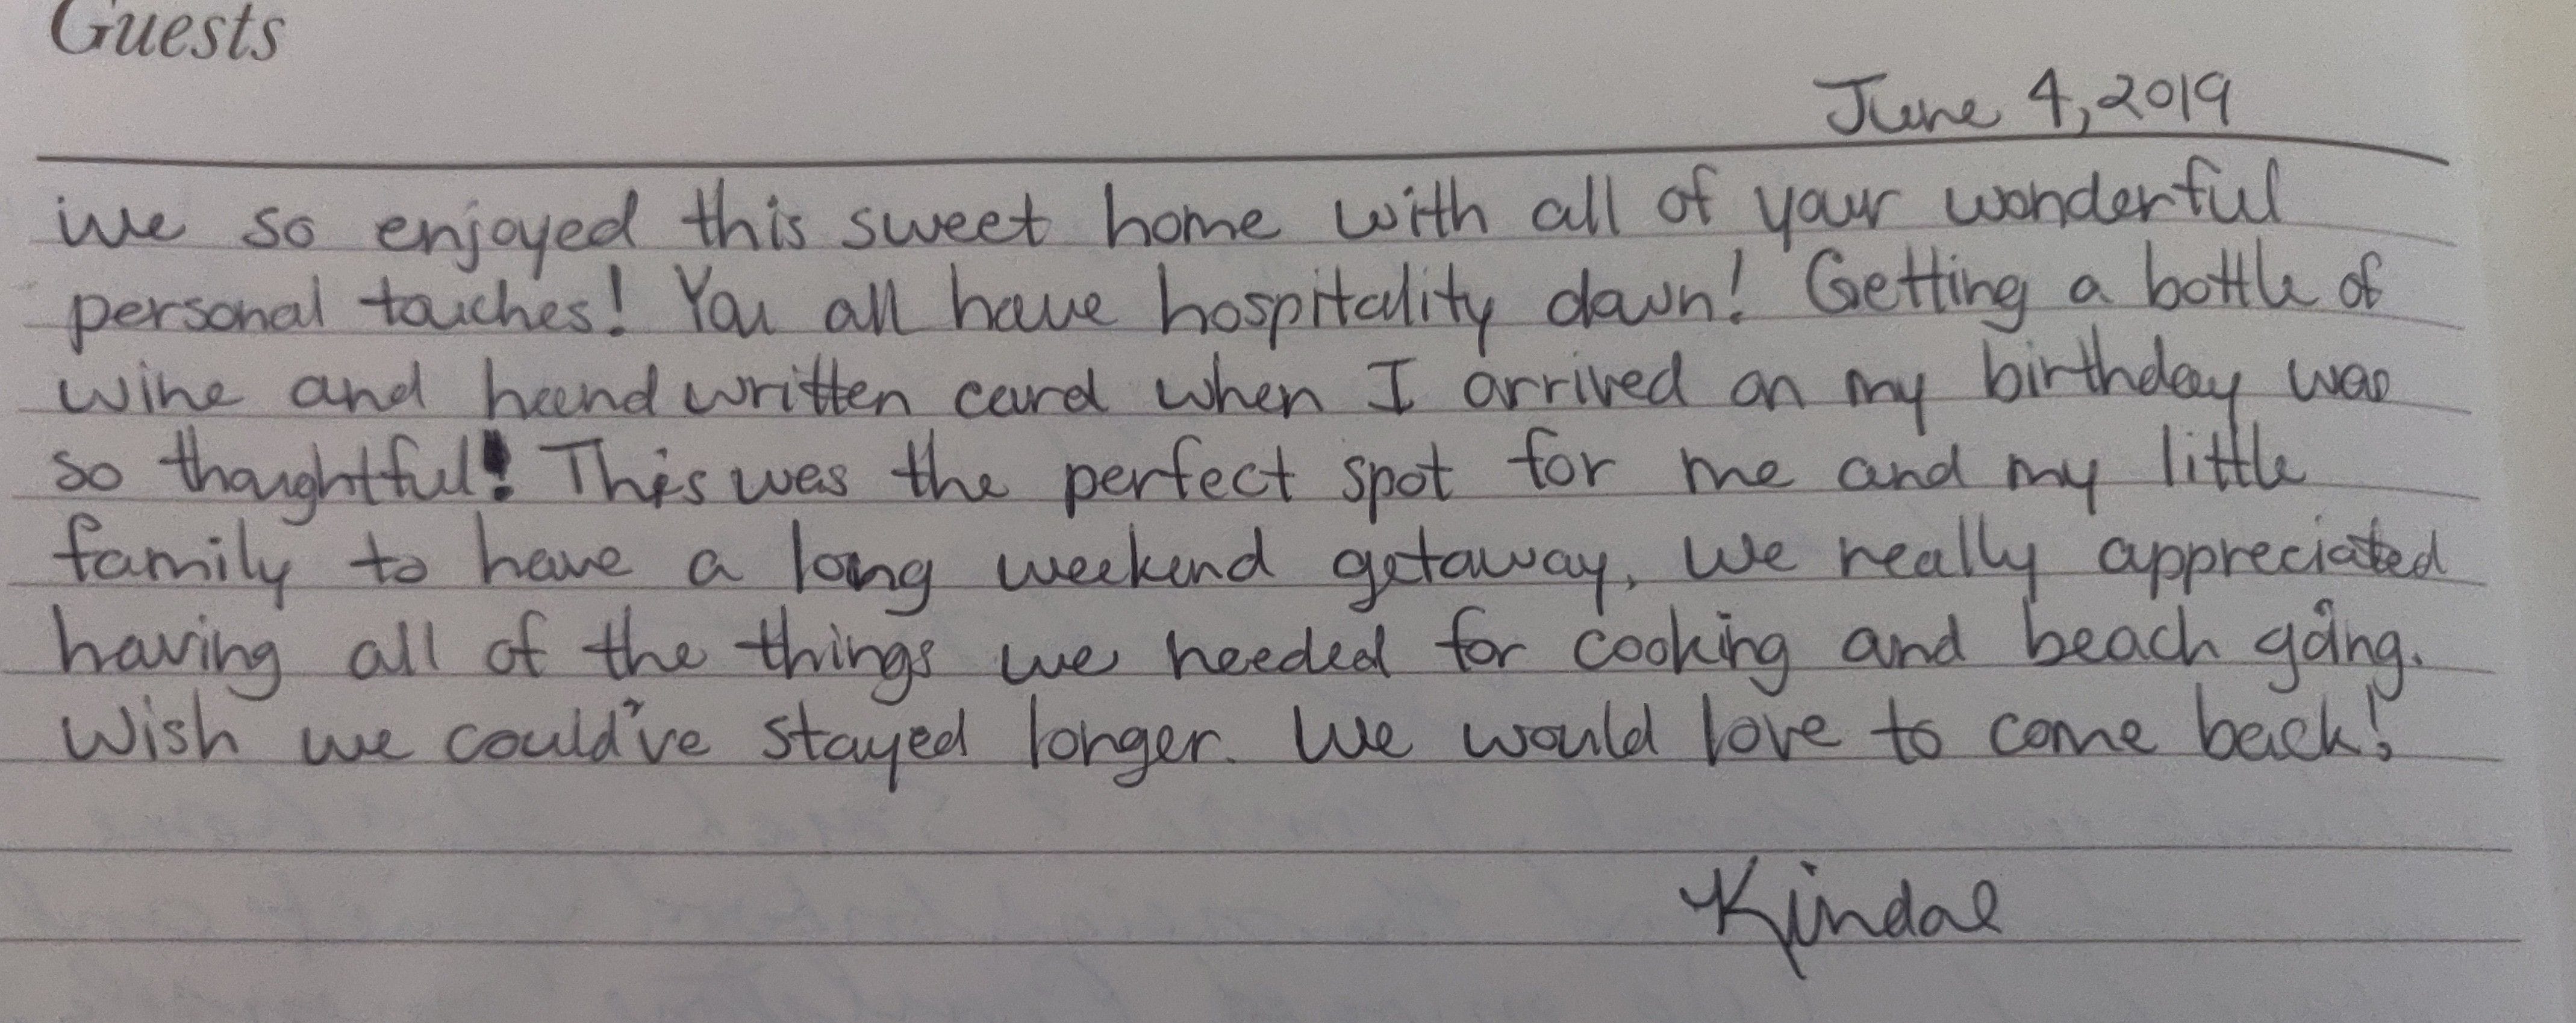 Guests
June 4, 2019
We so enjoyed this sweet home with all of your wonderful
personal touches! You all have hospitality down! Getting a bottle of
wine and handwritten card when I arrived on my birthday was
so thoughtful! This was the perfect spot for me and my little
family to have a long weekend getaway. We really appreciated
having all of the things we needed for cooking and beach going.
Wish we could've stayed longer. We would love to come back!
Kindal